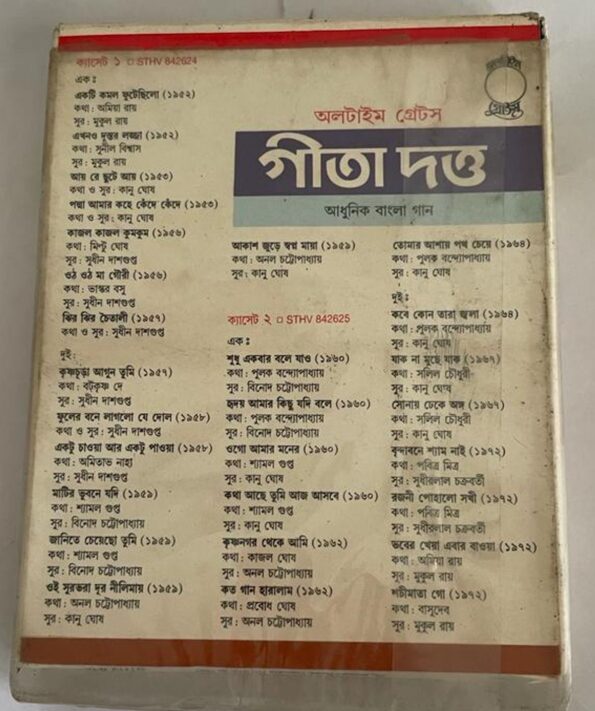 ক্যাসেট ১ □ STHV 842624
এক :
একটি কমল ফুটেছিলো (১৯৫২)
কথা : অমিয়া রায়
সুর : মুকুল রায়
এখনও দুস্তর লজ্জা (১৯৫২)
কথা : সুনীল বিশ্বাস
সুর : মুকুল রায়
আয় রে ছুটে আয় (১৯৫৩)
কথা ও সুর : কানু ঘোষ
পদ্মা আমার কহে কেঁদে কেঁদে (১৯৫৩)
কথা ও সুর : কানু ঘোষ
কাজল কাজল কুমকুম (১৯৫৬)
কথা : মিন্টু ঘোষ
সুর : সুধীন দাশগুপ্ত
ওঠ ওঠ মা গৌরী (১৯৫৬)
কথা : ভাস্কর বসু
সুর : সুধীন দাশগুপ্ত
ঝির ঝির চৈতালী (১৯৫৭)
কথা ও সুর : সুধীন দাশগুপ্ত
দুই :
কৃষ্ণচূড়া আগুন তুমি (১৯৫৭)
কথা : বটকৃষ্ণ দে
সুর : সুধীন দাশগুপ্ত
ফুলের বনে লাগলো যে দোল (১৯৫৮)
কথা ও সুর : সুধীন দাশগুপ্ত
একটু চাওয়া আর একটু পাওয়া (১৯৫৮)
কথা : অমিতাভ নাহা
সুর : সুধীন দাশগুপ্ত
মাটির ভুবনে যদি (১৯৫৯)
কথা : শ্যামল গুপ্ত
সুর : বিনোদ চট্টোপাধ্যায়
জানিতে চেয়েছো তুমি (১৯৫৯)
কথা : শ্যামল গুপ্ত
সুর : বিনোদ চট্টোপাধ্যায়
ওই সুরভরা দূর নীলিমায় (১৯৫৯)
কথা : অনল চট্টোপাধ্যায়
সুর : কানু ঘোষ
অলটাইম গ্রেটস
গীতা দত্ত
আধুনিক বাংলা গান
আকাশ জুড়ে স্বপ্ন মায়া (১৯৫৯)
কথা : অনল চট্টোপাধ্যায়
সুর : কানু ঘোষ
ক্যাসেট ২ □ STHV 842625
এক :
শুধু একবার বলে যাও (১৯৬০)
কথা : পুলক বন্দ্যোপাধ্যায়
সুর : বিনোদ চট্টোপাধ্যায়
হৃদয় আমার কিছু যদি বলে (১৯৬০)
কথা : পুলক বন্দ্যোপাধ্যায়
সুর : বিনোদ চট্টোপাধ্যায়
ওগো আমার মনের (১৯৬০)
কথা : শ্যামল গুপ্ত
সুর : কানু ঘোষ
কথা আছে তুমি আজ আসবে (১৯৬০)
কথা : শ্যামল গুপ্ত
সুর : কানু ঘোষ
কৃষ্ণনগর থেকে আমি (১৯৬২)
কথা : কাজল ঘোষ
সুর : অনল চট্টোপাধ্যায়
কত গান হারালাম (১৯৬২)
কথা : প্রবোধ ঘোষ
সুর : অনল চট্টোপাধ্যায়
তোমার আশায় পথ চেয়ে (১৯৬৪)
কথা : পুলক বন্দ্যোপাধ্যায়
সুর : কানু ঘোষ
দুই :
কবে কোন তারা জ্বলা (১৯৬৪)
কথা : পুলক বন্দ্যোপাধ্যায়
সুর : কানু ঘোষ
যাক না মুছে যাক (১৯৬৭)
কথা : সলিল চৌধুরী
সুর : কানু ঘোষ
সোনায় ঢেকে অঙ্গ (১৯৬৭)
কথা : সলিল চৌধুরী
সুর : কানু ঘোষ
বৃন্দাবনে শ্যাম নাই (১৯৭২)
কথা : পবিত্র মিত্র
সুর : সুধীরলাল চক্রবর্তী
রজনী পোহালো সখী (১৯৭২)
কথা : পবিত্র মিত্র
সুর : সুধীরলাল চক্রবর্তী
ভবের খেয়া এবার বাওয়া (১৯৭২)
কথা : অমিয়া রায়
সুর : মুকুল রায়
শচীমাতা গো (১৯৭২)
কথা : বাসুদেব
সুর : মুকুল রায়